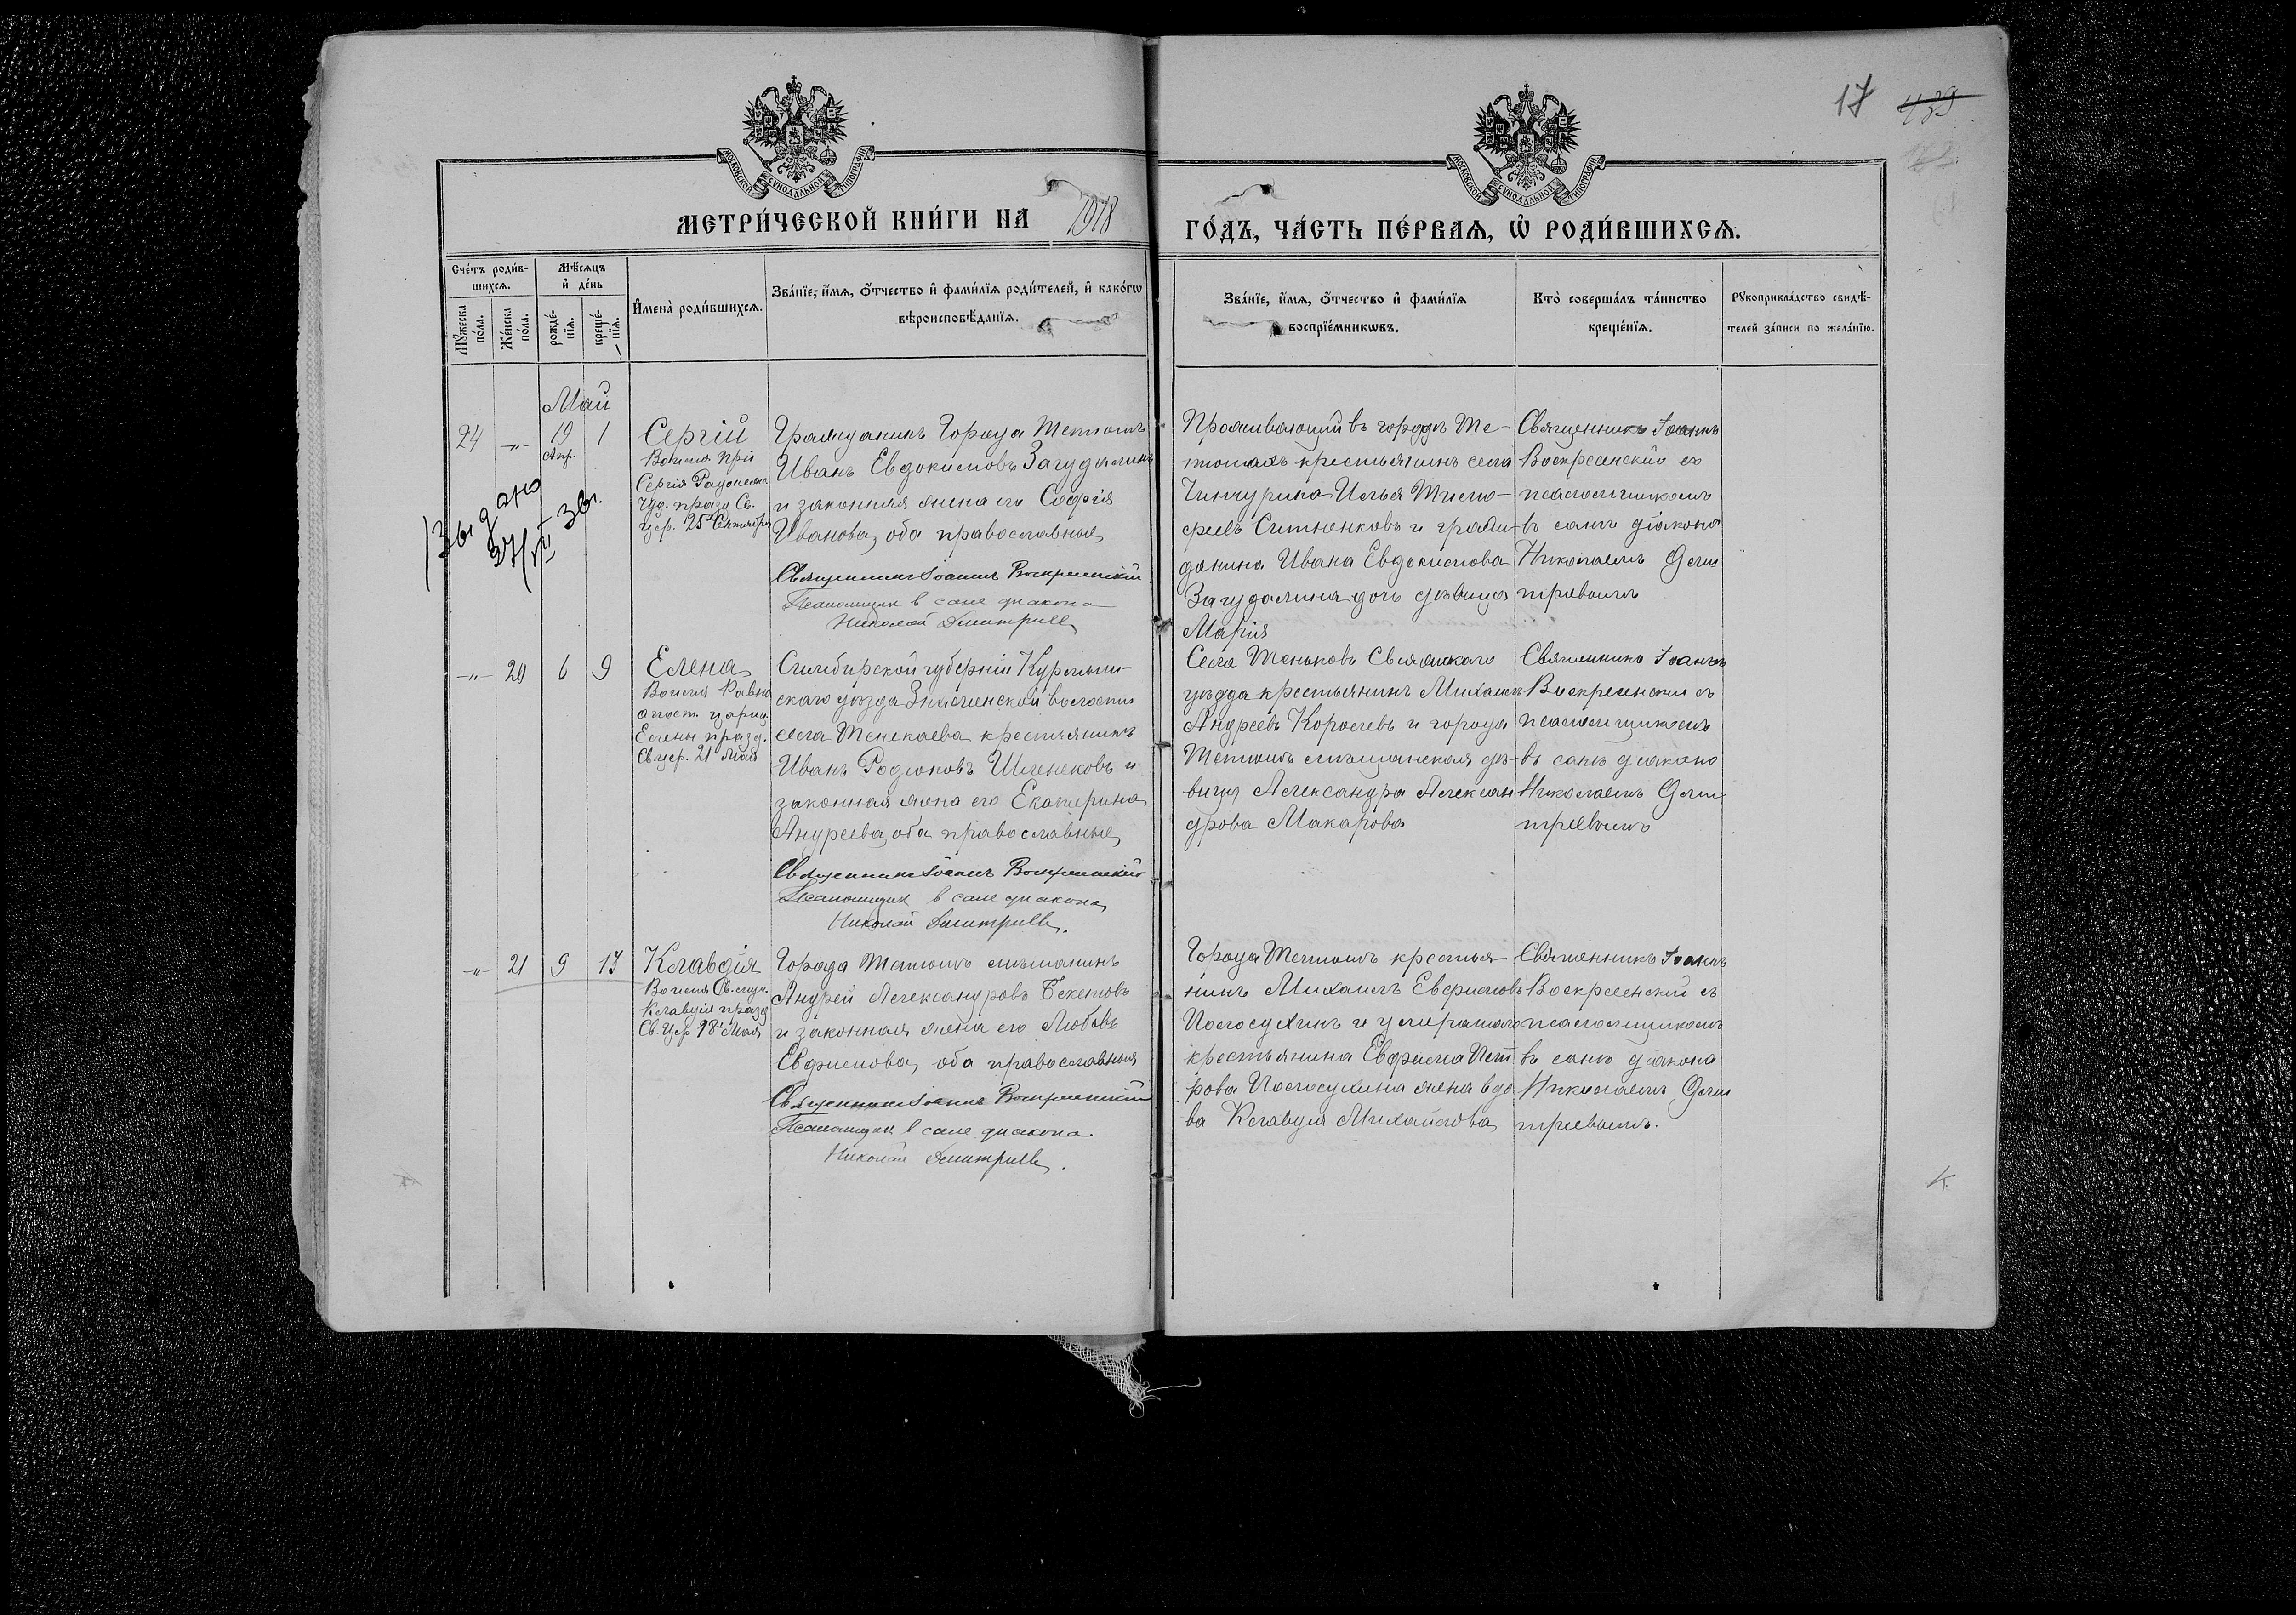 17 439
МОСКОВСКОЙ СУНОДАЛЬНОЙ ТИПОГРАФІИ
МОСКОВСКОЙ СУНОДАЛЬНОЙ ТИПОГРАФІИ
МЕТРИ́ЧЕСКОЙ КНИ́ГИ НА 1918 ГО́ДЪ, ЧА́СТЬ ПЕ́РВАѦ, Ѡ РОДИ́ВШИХСѦ.
Сче́тъ роди́в-
шихсѧ.
Мꙋ́жеска по́ла.
Же́нска по́ла.
Мѣ́сѧцъ и҆ де́нь
рожде́-
нїѧ.
креще́-
нїѧ.
И҆мена̀ роди́вшихсѧ.
Зва́нїе, и҆́мѧ, ѻ҆́тчество и҆ фами́лїѧ роди́телей, и҆ како́гѡ
вѣроисповѣ́данїѧ.
Зва́нїе, и҆́мѧ, ѻ҆́тчество и҆ фами́лїѧ
воспрїе́мникѡвъ.
Кто̀ соверша́лъ та́инство
креще́нїѧ.
Рꙋкоприкла́дство свидѣ́-
телей за́писи по жела́нїю.
Май
24 -„- 19 1
Апр.
Сергій
Сергія Радонежс
Чуд. празд Св.
цер. 25 Сентября
Выдано
Гражданинъ Города Тетюшъ
Иванъ Евдокимовъ Загудалинъ
и законная жена его Софія
Иванова, оба православные
Священникъ Іоаннъ Воскресенскій
Псаломщик в сане диакона
Николай Дмитриев
Проживающій въ городѣ Те-
тюшахъ крестьянинъ села
Чинчурина Илья Тимо-
феевъ Ситненковъ и граж-
данина Ивана Евдокимова
Загудалина дочь дѣвица
Марія
Священникъ Іоаннъ
Воскресенскій съ
псаломщикомъ
въ санѣ діакона
Николаемъ Дми
тріевымъ
-„- 20 6 9
Елена
Во имя Равно
апост. цариц.
Елены празд.
Св. цер. 21 Мая
Симбирской губерніи Курмыш-
скаго уѣзда Знаменской волости
села Тенекаева крестьянинъ
Иванъ Родіоновъ Шленековъ и
законная жена его Екатерина
Андреева, оба православные
Священникъ Іоаннъ Воскресенскій
Псаломщик в сане диакона
Николай Дмитриев.
Села Теньковъ Свіяжскаго
уѣзда крестьянинъ Михаилъ
Андреевъ Королевъ и города
Тетюшъ мѣщанская дѣ-
вица Александра Алексан
дрова Макарова
Священникъ Іоаннъ
Воскресенскій съ
псаломщикомъ
въ санѣ діакона
Николаемъ Дми-
тріевымъ
-„- 21 9 13
Клавдія
Во имя Св. муч.
Клавдіи празд
Св. Цер 18 Мая
Города Тетюшъ мѣщанинъ
Андрей Александровъ Бекетовъ
и законная жена его Любовь
Евфимова, оба православныя
Священникъ Іоаннъ Воскресенскій
Псаломщик в сане диакона
Николай Дмитриев.
Города Тетюшъ крестья-
нинъ Михаилъ Евфимовъ
Полосухинъ и умершаго
крестьянина Евфима Пет
рова Полосухина жена вдо
ва Клавдія Михайлова
Священникъ Іоаннъ
Воскресенскій съ
псаломщикомъ
въ санѣ діакона
Николаемъ Дми
тріевымъ.